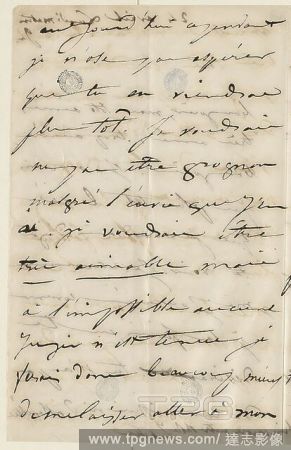 aujourd'hui cependant
je n'ose pas espérer
que tu en viendras
plus tôt. Je voudrais
ne pas être grognon
malgré l'envie que j'en
ai. je voudrais être
très aimable mais
à l'impossible aucune
Juju n'est tenue je
ferai donc beaucoup mieux
de me laisser aller à mon
TPG
www.tpgnews.com / 達志影像